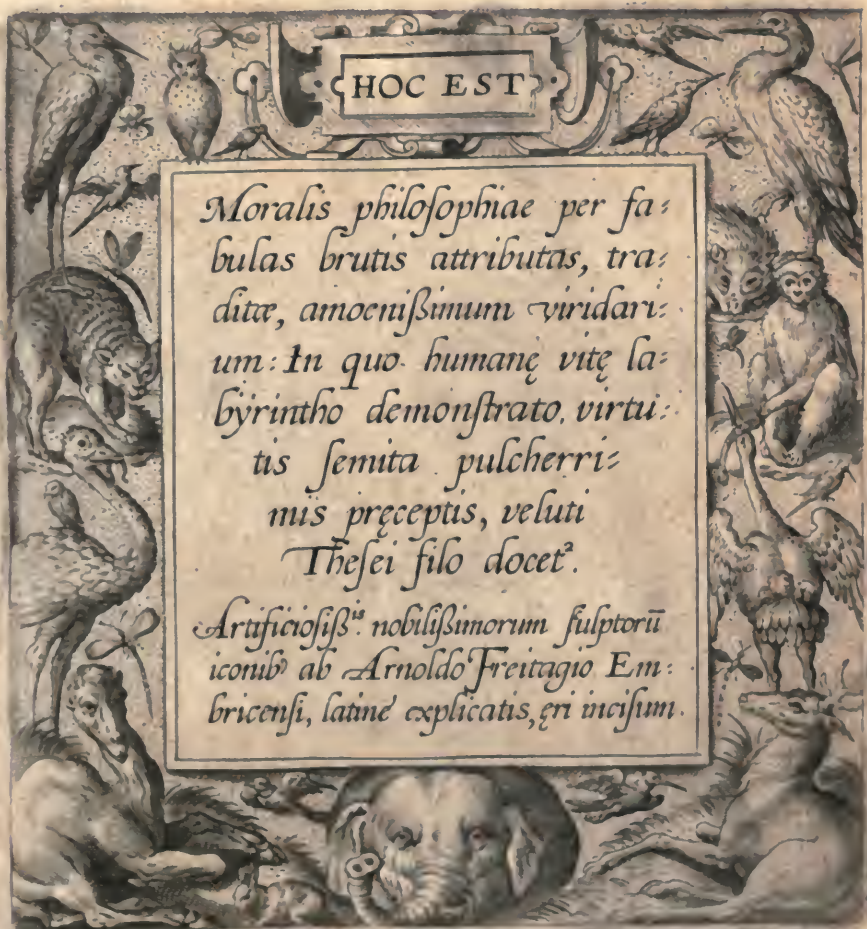 HOC EST
Moralis philoſophiae per fa⸗
bulas brutis attributas, tra⸗
ditæ, amoeniſſimum viridari⸗
um: In quo humanę vitę la⸗
bÿrintho demonſtrato, virtu⸗
tis ſemita pulcherri⸗
mis pręceptis, veluti
Theſei filo docetᷣ.
Artificioſiſsⁱˢ. nobiliſſimorum ſculptorū
iconibꝰ ab Arnoldo Freitagio Em⸗
bricenſi, latinè explicatis, ęri inciſum.